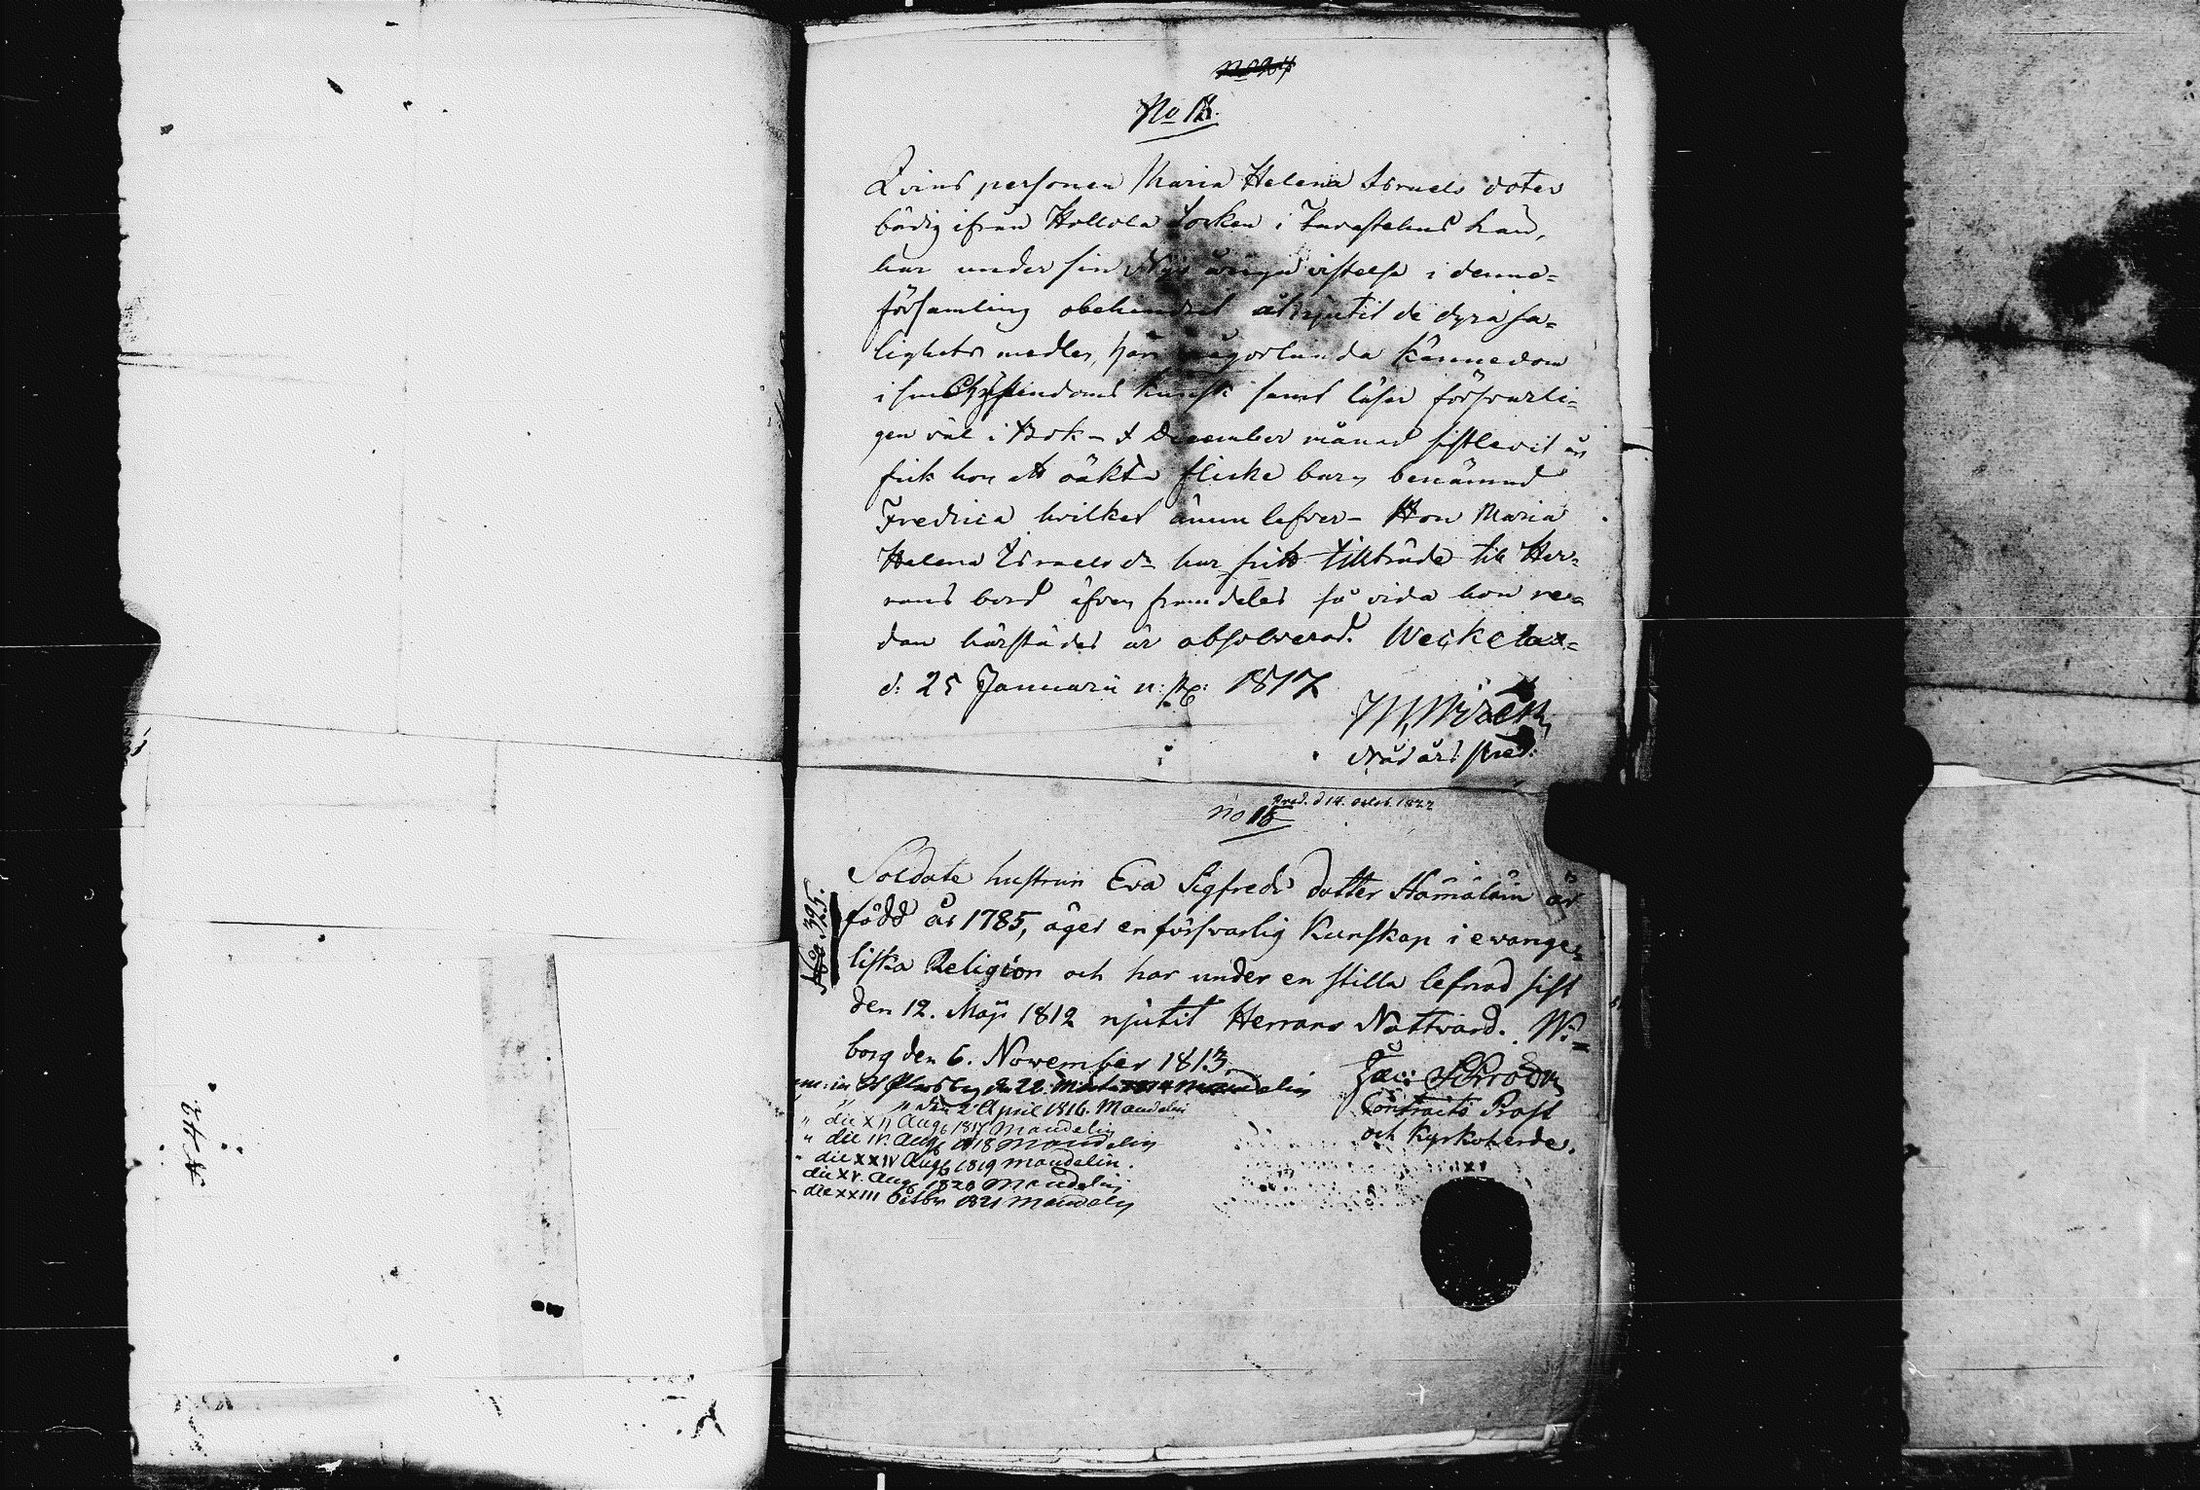 No 18.
Qvins personen Maria Helena Israels doter
bördig ifrån Hollola Socken i Tavastehus Län,
har under sin vistelse i denna
församling obehindrat åtnjutit de dyra sa=
lighets medlen, har någorlunda kännedom
i sin Christendoms kunsk: samt läser försvarli=
gen väl i Bok - I December månad sistlevit år
fick hon ett oäkta flicke barn benämnd
Fredrica hvilket ännu lefver - Hon Maria
Helena Israels dr har fritt tillträde till Her=
rans bord äfven framdeles så vida hon re=
dan härstädes är absolverad. Weckelax=
d: 25 Januarii n: st: 1817
Nådårs Pred:
Prod. d 14. Octob. 1822
no 15
Soldats hustrun Eva Sigfreds dotter Hämäläin är
född år 1785, äger en försvarlig Kunskap i evange=
liska Religion och har under en stilla lefnad sist
den 12. Maji 1812 njutit Herrans Nattvard. Wi=
borg den 6. November 1813.
Contracts Prost
och Kyrkoherde.
" den 2 April 1816. Mandelin
" die XII Aug 1817 Mandelin
" die IV. Aug 1818 Mandelin
" die XXIV Aug 1819 Mandelin.
die XV. Aug 1820 Mandelin
die XXIII Octbr 1821 Mandelin
pag. 395.